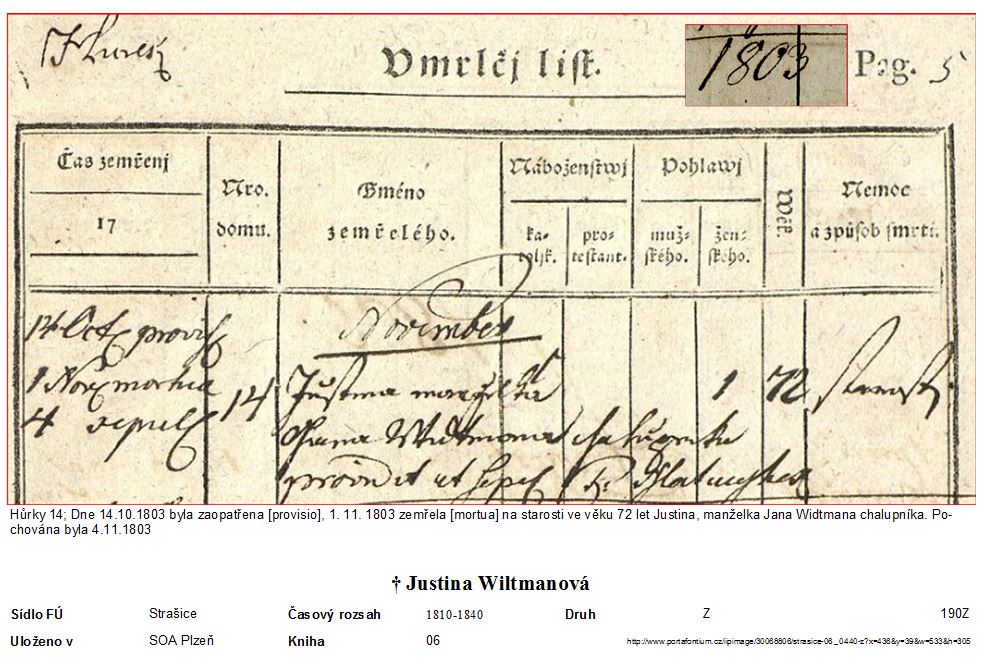 Vmrlčj list.
1803
Pag. 5
Čas zemřenj
17
Nro.
domu.
Gméno
zemřelého.
Náboženstwj
ka-
toljk.
pro-
testant.
Pohlawj
muž-
ského.
žen-
ského.
Wěk.
Nemoc
a způsob smrti.
November
14 Oct provis
1 Nov mortua
4 sepel
14
Justina manželka
Jana Widtmana chalupnika
provid et sepel
1
72
starost
Hůrky 14; Dne 14.10.1803 byla zaopatřena [provisio], 1. 11. 1803 zemřela [mortua] na starosti ve věku 72 let Justina, manželka Jana Widtmana chalupníka. Po-
chována byla 4.11.1803
† Justina Wiltmanová
Sídlo FÚ Strašice Časový rozsah 1810-1840 Druh Z 190Z
Uloženo v SOA Plzeň Kniha 06 http://www.portafontium.cz/iipimage/30068806/strasice-06_0440-z?x=436&y=39&w=533&h=305